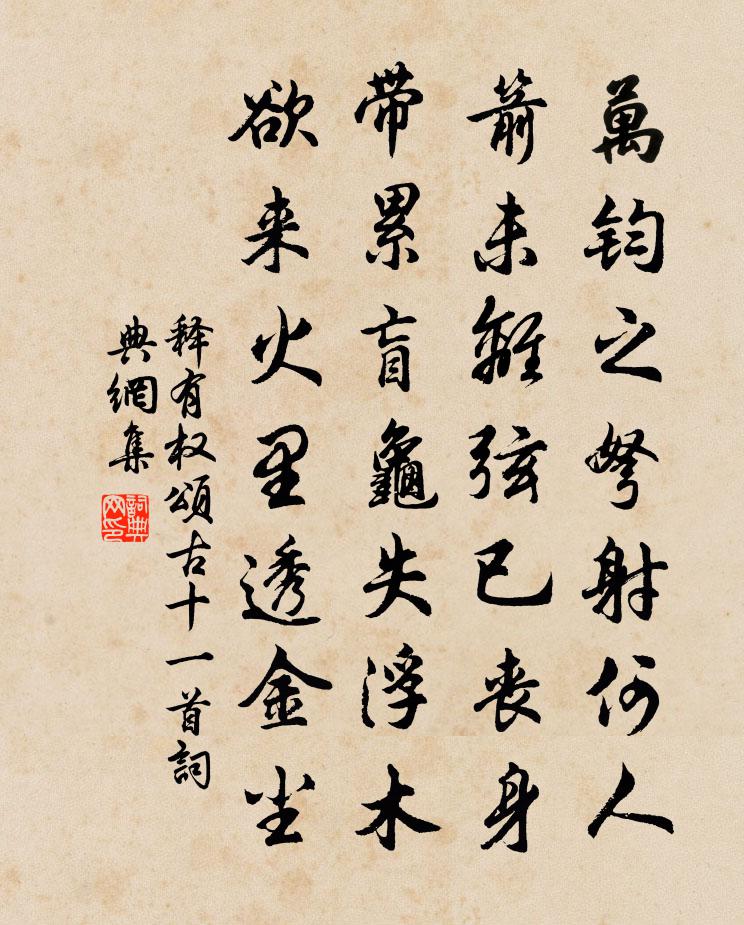 萬鈞之弩射何人
箭未離弦已喪身
带累盲龜失浮木
欲来火里透金尘
释有权頌古十一首詞
典網集
詞典
网印